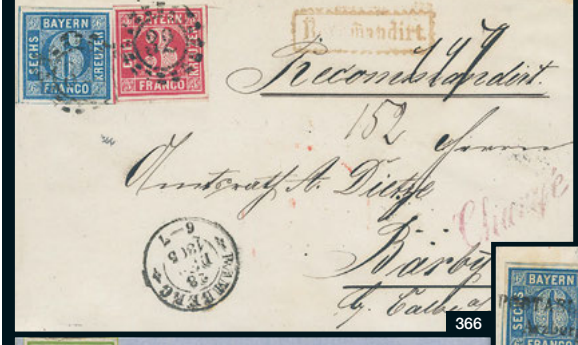 BAYERN
SECHS
KREUZER
FRANCO
BAYERN
32
FRANCO
Recommandirt.
197
Recomandirt.
152 Herrn
Amtsrath A. Dietze
Chargé
Barby
BAMBERG
6-7
366
BAYERN
SECHS
FRANCO